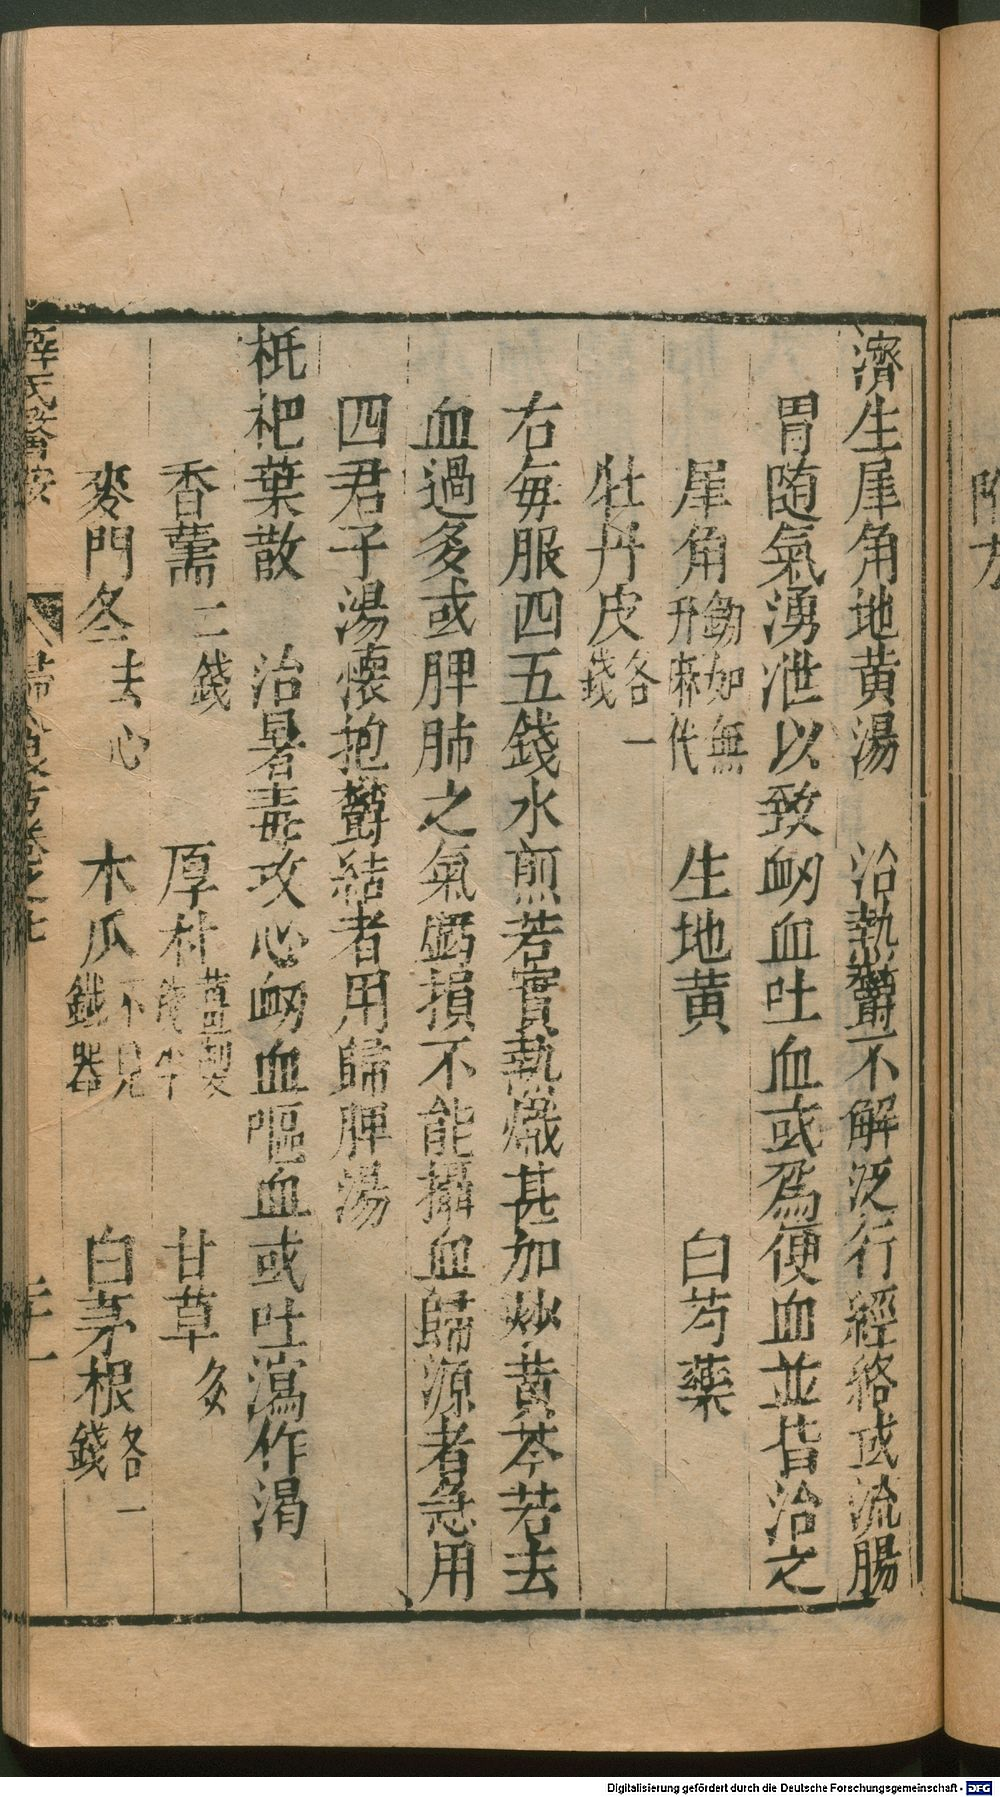 濟生犀角地黄湯　治熱鬱不解泛行經絡或流腸
胃隨氣湧泄以致衂血吐血或爲便血並皆治之
犀角 鎊如無升麻代　生地黄　白芍藥
牡丹皮 各一錢
右每服四五錢水煎若實熱熾甚加炒黄芩若去
血過多或脾肺之氣虧損不能攝血歸源者急用
四君子湯懷抱鬱結者用歸脾湯
枇杷葉散　治暑毒攻心衂血嘔血或吐瀉作渴
香薷 二錢　厚朴 薑製　甘草 炙
麥門冬 去心　木瓜 不見鐵器　白茅根 各一錢
薛氏醫按　婦人良方卷之七
附方
Digitalisierung gefördert durch die Deutsche Forschungsgemeinschaft - DFG